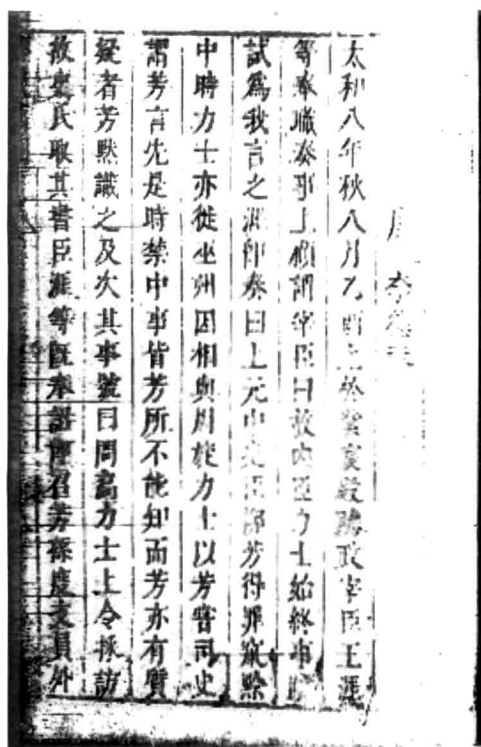 唐 李德裕
太和八年秋八月乙酉上於紫宸殿聽政宰臣王涯
等奉職奏事上顧謂宰臣曰故內臣力士始終事跡
試爲我言之涯卽奏曰上元中史臣柳芳得罪竄黔
中時力士亦徙巫州因相與周旋力士以芳嘗司史
謂芳言先是時禁中事皆芳所不能知而芳亦有質
疑者芳默識之及次其事號曰問高力士上令採訪
故史氏取其書臣涯等旣奉詔卽召芳孫度支員外